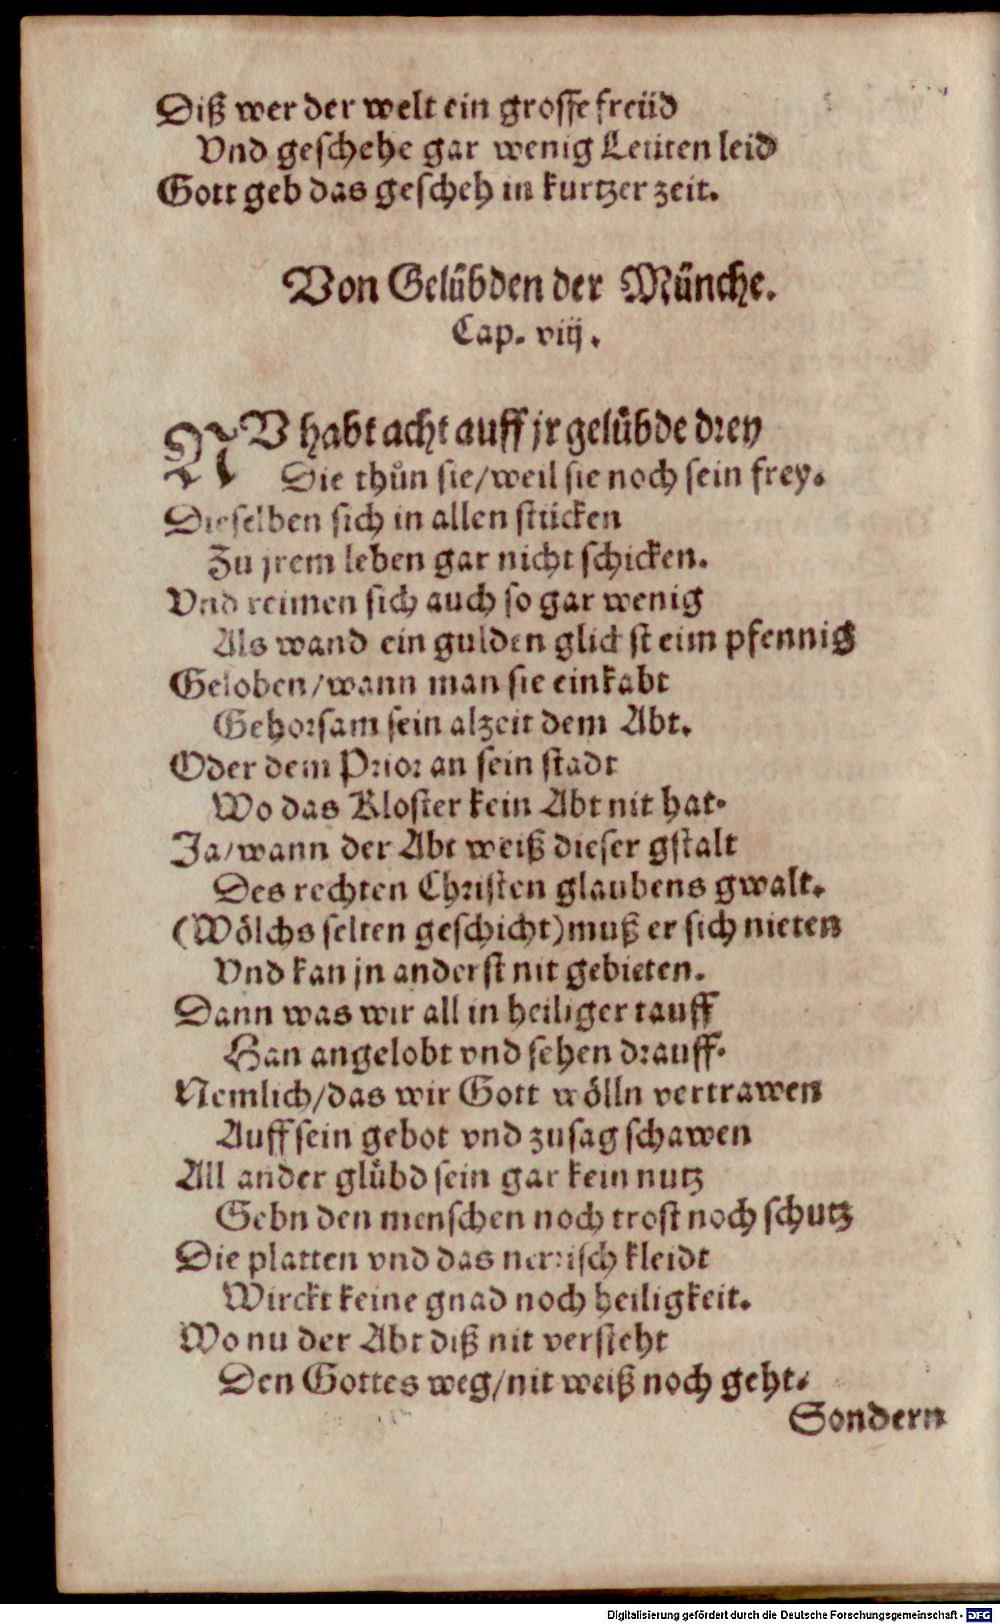 Diß wer der welt ein grosse freüd
Vnd geschehe gar wenig Leüten leid
Gott geb das gescheh in kurtzer zeit.
Von Gelübden der Münche.
Cap. viij.
NV habt acht auff jr gelübde drey
Die thůn sie/weil sie noch sein frey.
Dieselben sich in allen stücken
Zu jrem leben gar nicht schicken.
Vnd reimen sich auch so gar wenig
Als wand ein gulden glichst eim pfennig
Geloben/wann man sie einkabt
Gehorsam sein alzeit dem Abt.
Oder dem Prior an sein stadt
Wo das Kloster kein Abt nit hat.
Ja/wann der Abt weiß dieser gstalt
Des rechten Christen glaubens gwalt.
(Wölchs selten geschicht) muß er sich nieten
Vnd kan jn anderst nit gebieten.
Dann was wir all in heiliger tauff
Han angelobt vnd sehen drauff.
Nemlich/das wir Gott wölln vertrawen
Auff sein gebot vnd zusag schawen
All ander glübd sein gar kein nutz
Gebn den menschen noch trost noch schutz
Die platten vnd das nerrisch kleidt
Wirckt keine gnad noch heiligkeit.
Wo nu der Abt diß nit versteht
Den Gottes weg/nit weiß noch geht.
Sondern
Digitalisierung gefördert durch die Deutsche Forschungsgemeinschaft - DFG